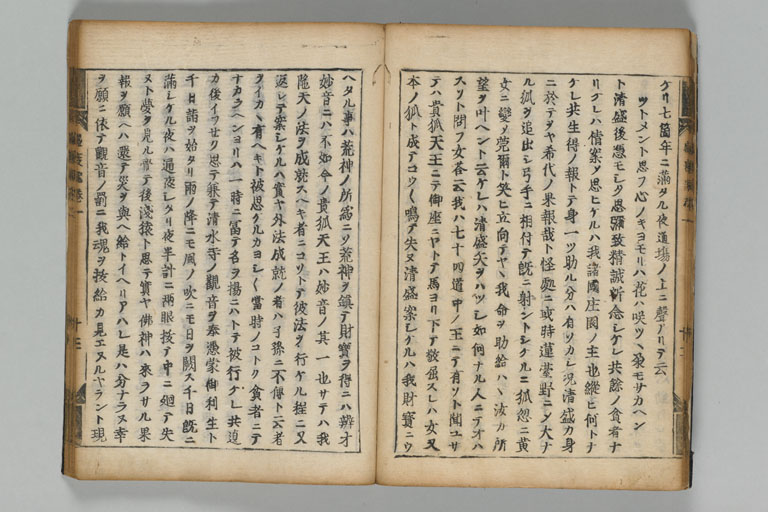 ケリ七箇年ニ滿タル夜道場ノ上ニ聲アリテ云
ツトメント思フ心ノキヨモリハ花ハ咲ツヽ枝モサカヘン
ト清盛後憑モシク思彌致精誠祈念シケレ共餘ノ貧者ナ
リケレハ情案ヲ思ヒケルハ我諸國庄園ノ主也縱ヒ何トナ
ケレ共生得ノ報トテ身一ツ助ル分ハ有ソカシ況清盛カ身
ニ於テヲヤ希代ノ果報哉ト怪處ニ或時蓮臺野ニテ大ナ
ル狐ヲ追出シ弓手ニ相付テ既ニ射ントシケルニ狐忽ニ黄
女ニ變メ莞爾ト笑ヒ立向テヤヽ我命ヲ助給ハヽ汝カ所
望ヲ叶ヘント云ケレハ清盛矢ヲハツシ如何ナル人ニテオハ
スソト問フ女答云我ハ七十四道中ノ王ニテ有ソト聞ユサ
テハ貴狐天王ニテ御座ニヤトテ馬ヨリ下テ敬屈スレハ女又
本ノ狐ト成テコウ〳〵鳴テ失ヌ清盛案シケルハ我財寳ニウ
ヘタル事ハ荒神ノ所爲ニソ荒神ヲ鎮テ財寳ヲ得ニハ辨才
妙音ニハ不如今ノ貴狐天王ハ妙音ノ其一也サテハ我
陀天ノ法ヲ成就スヘキ者ニコソトテ彼法ヲ行ケル程ニ又
返シテ案シケルハ實ヤ外法成就ノ者ハ子孫ニ不傳ト云者
ヲイカヽ有ヘキト被思ケルカヨシ〳〵當時ノコトク貧者ニテ
ナカラヘンヨリハ一時ニ富テ名ヲ揚ニハトテ被行ケレ共迫
カ後イフセク思テ兼テ清水寺ノ觀音ヲ奉憑蒙御利生ト
千日詣ヲ始タリ雨ノ降ニモ風ノ吹ニモ日ヲ闕ス千日既ニ
滿シケル夜ハ通夜シタリ夜半計ニ兩眼抜テ中ニ廻テ失
ヌト夢ヲ見ル覺テ後淺猿ト思テ實ヤ佛神ハ來ラサル果
報ヲ願ヘハ還テ災ヲ與ヘ給トイヘリアハレ是ハ分ナラヌ幸
ヲ願ニ依テ觀音ノ罰ニ我魂ヲ抜給カ見エスルヤラント現